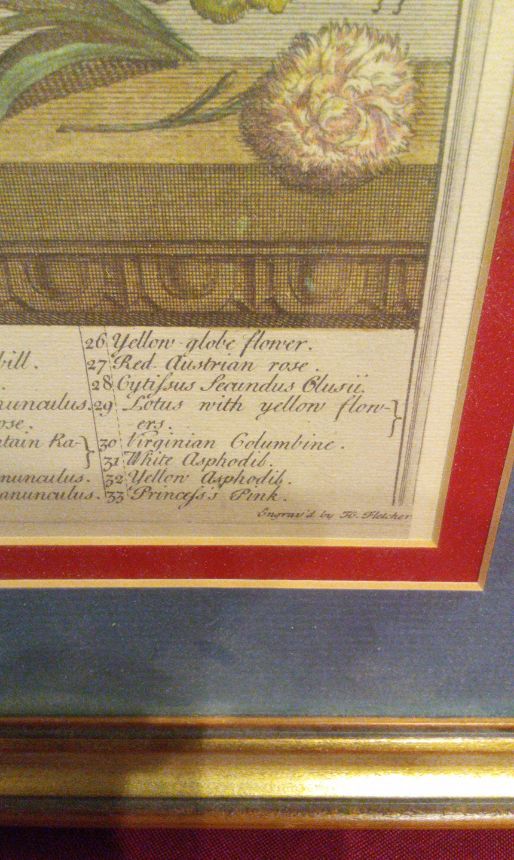 bill.
.
nunculus.
ose.
ntain Ra-
nunculus.
anunculus.
26 Yellow globe flower.
27 Red Austrian rose.
28 Cytissus Secundus Clusii.
29 Lotus with yellow flow-
ers.
30 Virginian Columbine.
31 White Asphodil.
32 Yellow Asphodil.
33 Princess's Pink.
Engrav'd by H. Fletcher